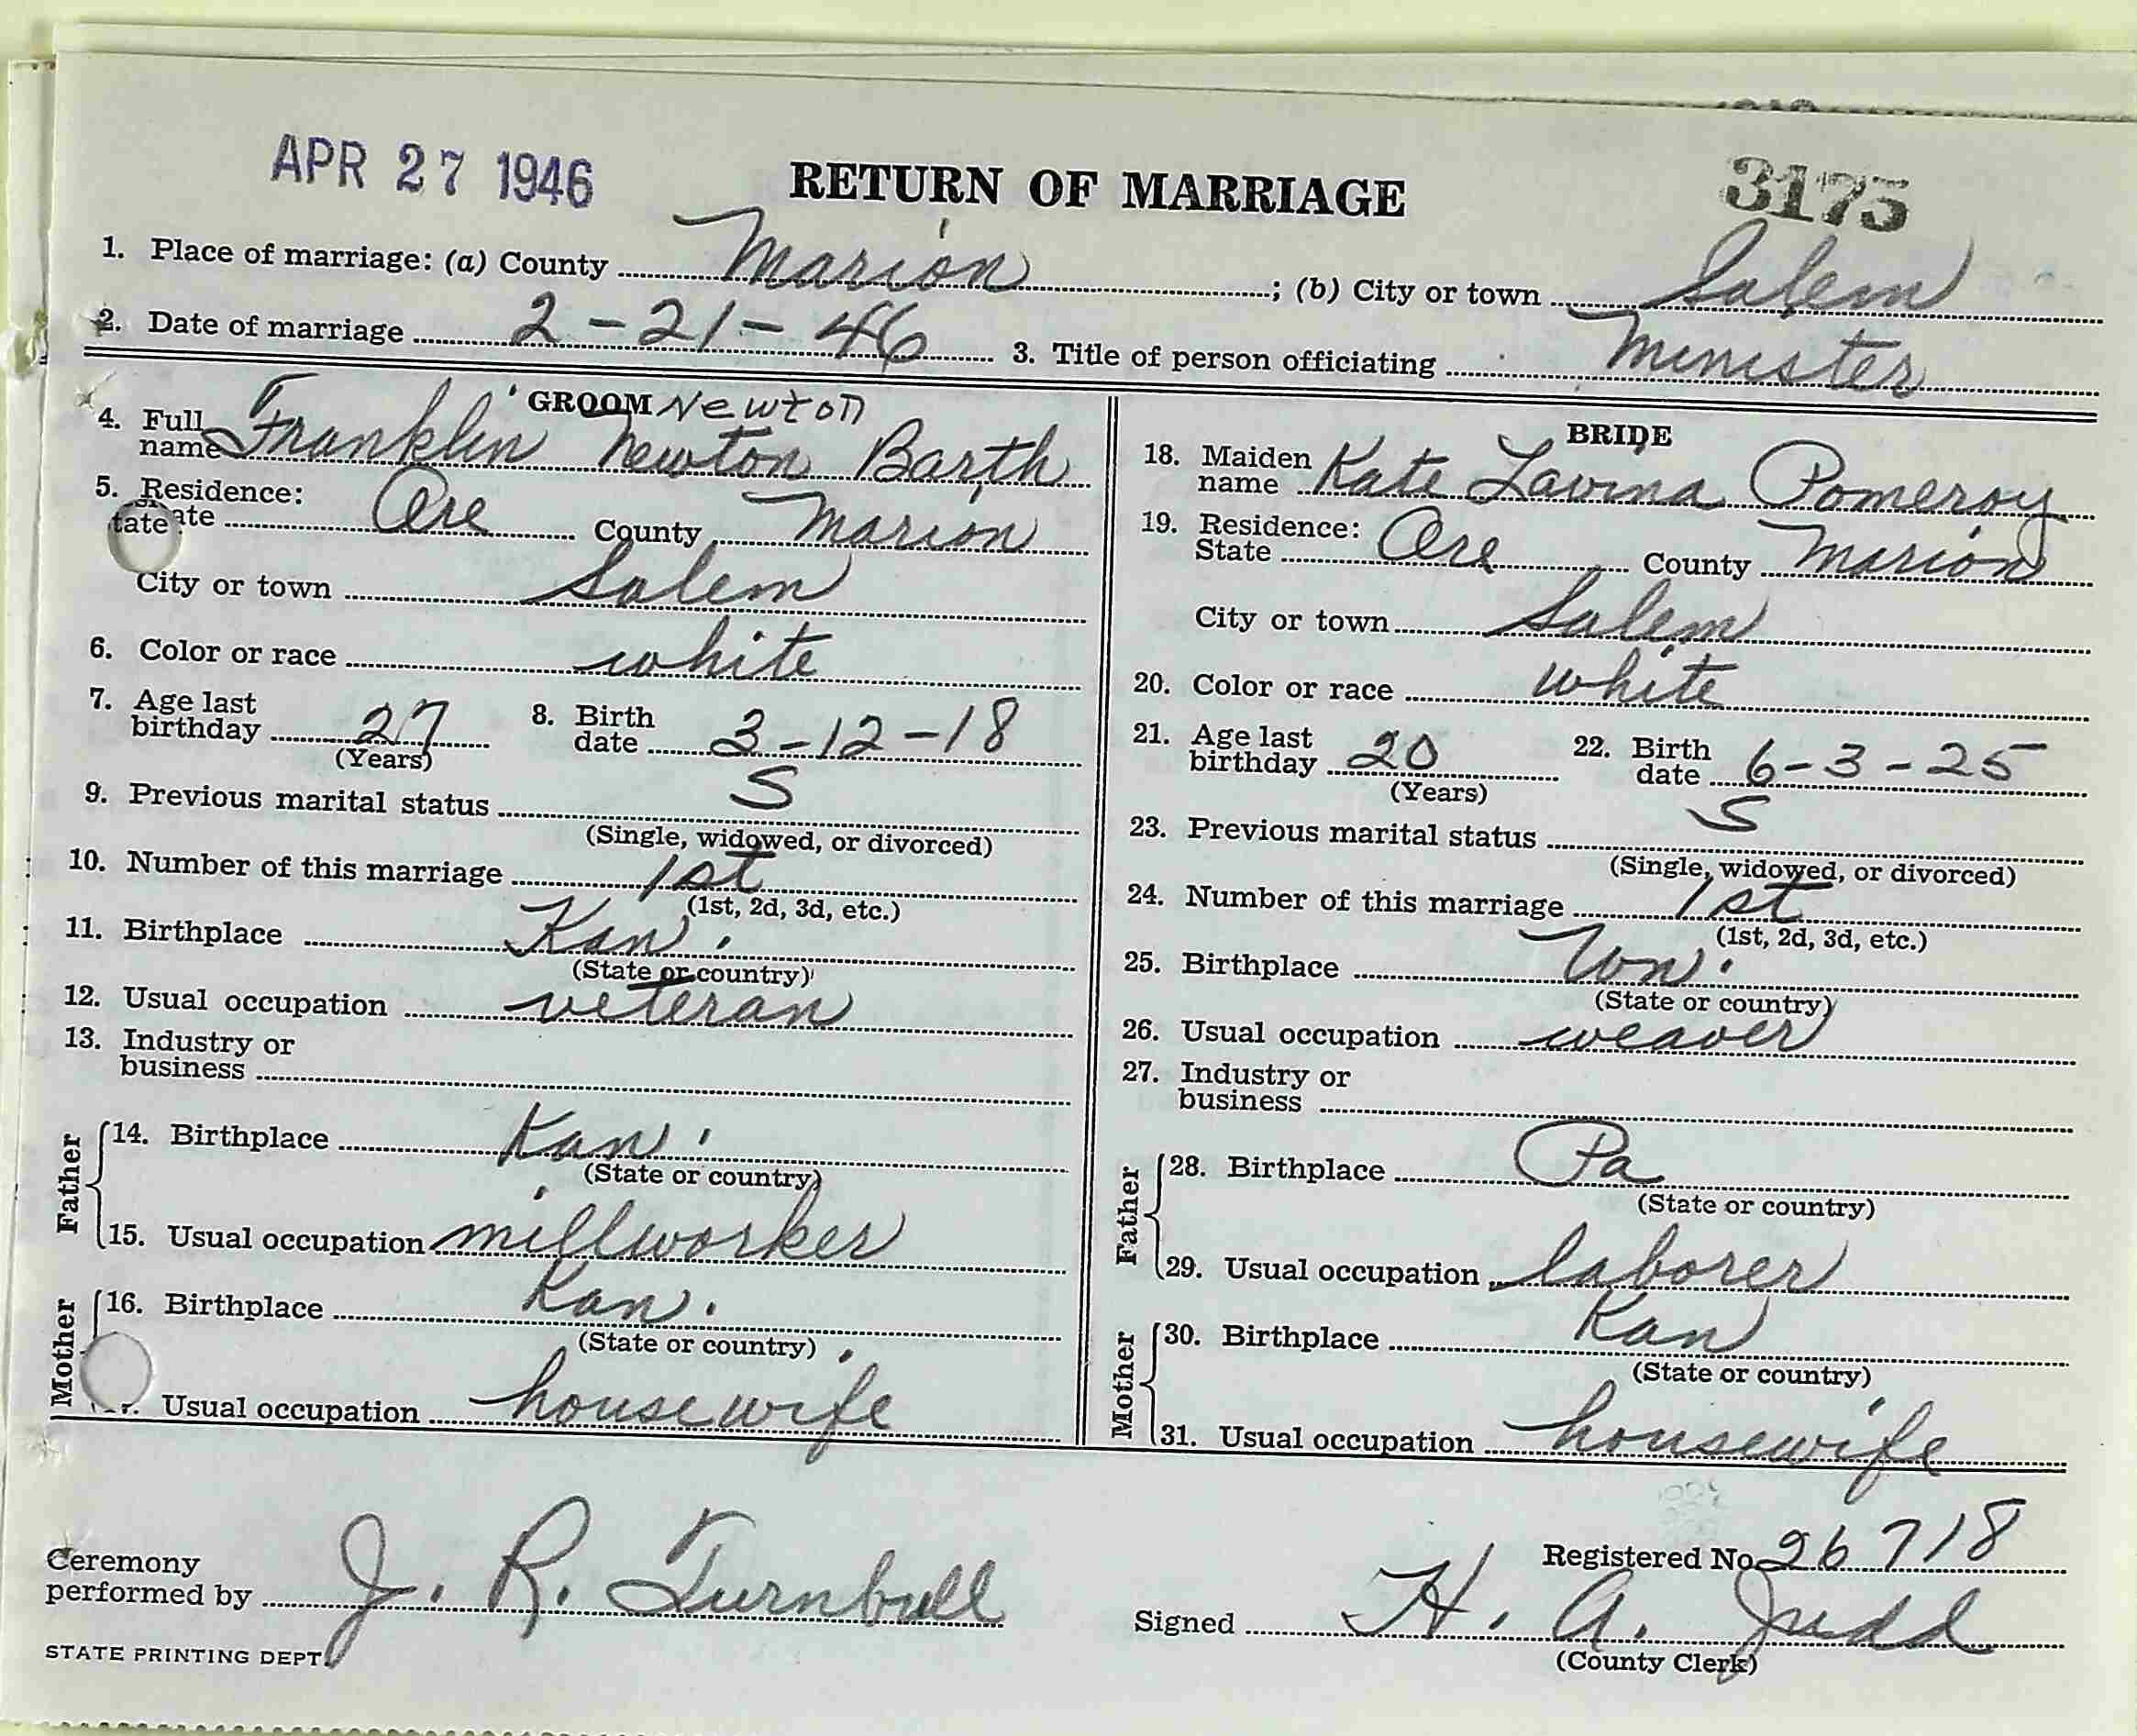 APR 27 1946
RETURN OF MARRIAGE
3175
1. Place of marriage: (a) County Marion ; (b) City or town Salem
2. Date of marriage 2-21-46 3. Title of person officiating Minister
GROOM Newton
4. Full name Franklin Newton Barth
5. Residence:
tate ate Ore County Marion
City or town Salem
6. Color or race white
7. Age last birthday 27 (Years) 8. Birth date 3-12-18
9. Previous marital status S
(Single, widowed, or divorced)
10. Number of this marriage 1st
(1st, 2d, 3d, etc.)
11. Birthplace Kan.
(State or country)
12. Usual occupation veteran
13. Industry or business
Father
14. Birthplace Kan.
(State or country)
15. Usual occupation millworker
Mother
16. Birthplace Kan.
(State or country)
Usual occupation housewife
BRIDE
18. Maiden name Kate Lavina Pomeroy
19. Residence:
State Ore County Marion
City or town Salem
20. Color or race white
21. Age last birthday 20 (Years) 22. Birth date 6-3-25
23. Previous marital status S
(Single, widowed, or divorced)
24. Number of this marriage 1st
(1st, 2d, 3d, etc.)
25. Birthplace
(State or country)
26. Usual occupation weaver
27. Industry or business
Father
28. Birthplace Pa
(State or country)
29. Usual occupation laborer
Mother
30. Birthplace Kan
(State or country)
31. Usual occupation housewife
Ceremony performed by J. R. Turnbull
Registered No. 26718
Signed H. A. Judd
(County Clerk)
STATE PRINTING DEPT.